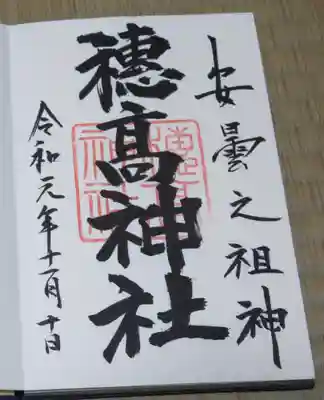 安曇之祖神
穂髙神社
令和元年十一月十日